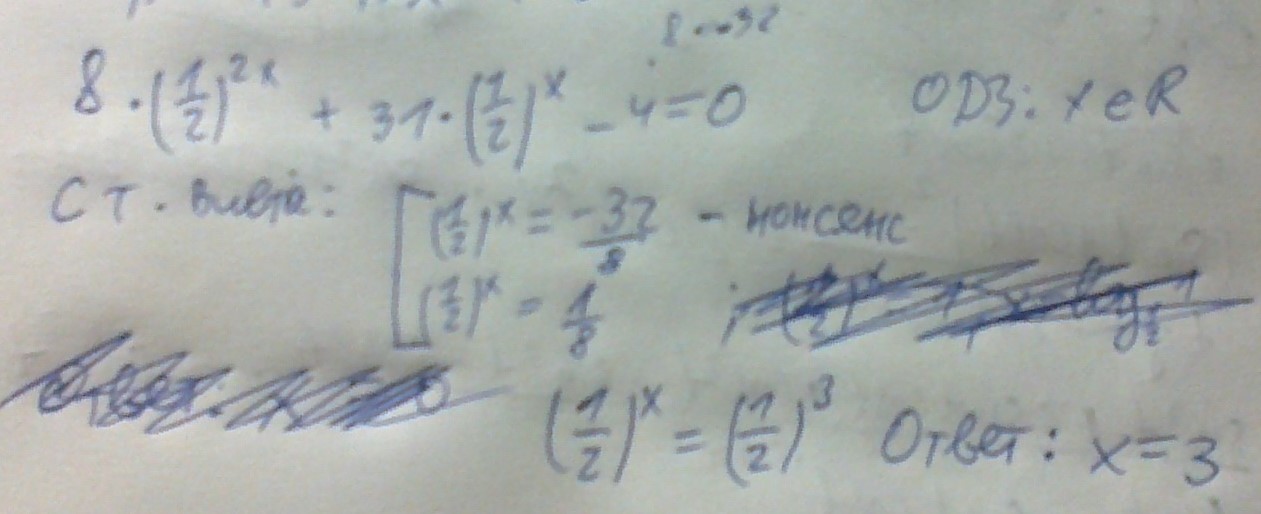 8·(1/2)^2x + 31·(1/2)^x - 4 = 0 ОДЗ: x є R
С т. Виета: [ (1/2)^x = -32/8 - нонсенс
(1/2)^x = 1/8
(1/2)^x = (1/2)^3 Ответ: x = 3